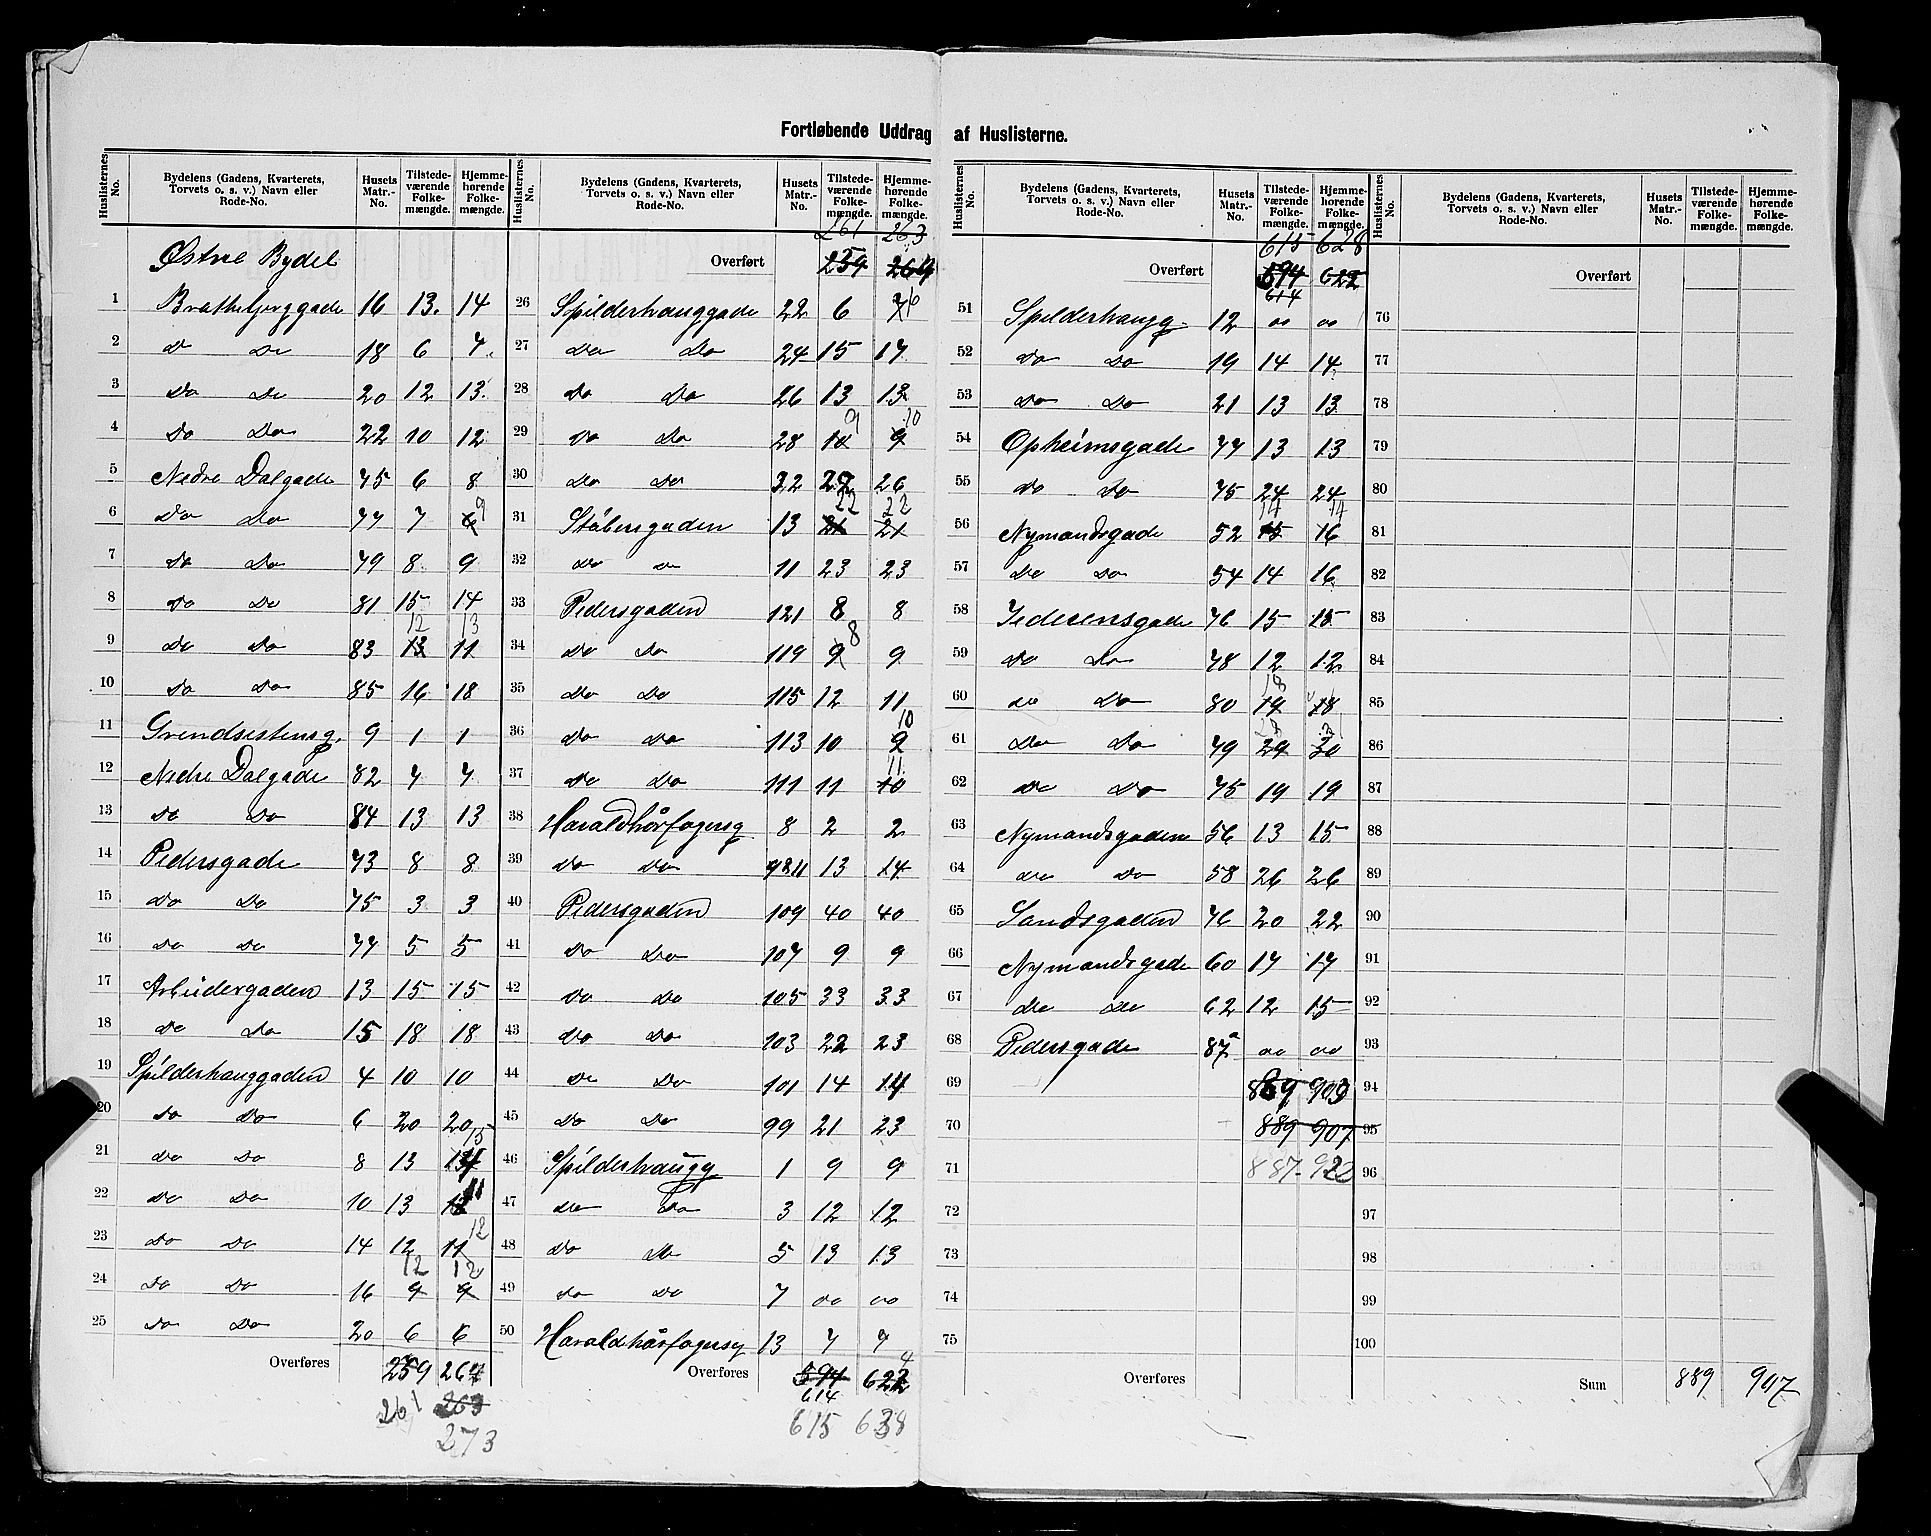 Fortløbende Uddrag af Huslisterne.
Huslisternes No. | Bydelens (Gadens, Kvarterets, Torvets o. s. v.) Navn eller Rode-No. | Husets Matr.-No. | Tilstede-værende Folke-mængde. | Hjemme-hørende Folke-mængde.
Østre Bydel
1 Brattebjerggade 16 13. 14
2 Do Do 18 6 7.
3 Do Do 20 12 13.
4 Do Do 22 10 12
5 Nedre Dalgade 75 6 8
6 Do Do 77 7 6 9
7 Do Do 79 8 9
8 Do Do 81 15 14
9 Do Do 83 13 12 11 13
10 Do Do 85 16 18
11 Grendseistensg. 9 1 1
12 Nedre Dalgade 82 7 7
13 Do Do 84 13 13
14 Pedersgade 73 8 8
15 Do Do 75 3 3
16 Do Do 77 5 5
17 Arbeidergaden 13 15 15
18 Do Do 15 18 18
19 Spilderhauggaden 4 10 10
20 Do Do 6 20 20
21 Do Do 8 13 15
22 Do Do 10 13 11
23 Do Do 14 12 11 12
24 Do Do 16 9 12 9 12
25 Do Do 20 6 6
Overføres 259 267
261 263
273
Huslisternes No. | Bydelens (Gadens, Kvarterets, Torvets o. s. v.) Navn eller Rode-No. | Husets Matr.-No. | Tilstede-værende Folke-mængde. | Hjemme-hørende Folke-mængde.
261 263
Overført 259 264
26 Spilderhauggade 22 6 7 6
27 Do Do 24 15 17
28 Do Do 26 13 13
29 Do Do 28 10 9 9 10
30 Do Do 32 27 26
31 Støbersgaden 13 21 22 21 22
32 Do Do 11 23 23
33 Pedersgaden 121 8 8
34 Do Do 119 9 8 9
35 Do Do 115 12 11
36 Do Do 113 10 9 10
37 Do Do 111 11 10 11
38 Haraldhårfagersg 8 2 2
39 Do Do 9&11 13 14
40 Pedersgaden 109 40 40
41 Do Do 107 9 9
42 Do Do 105 33 33
43 Do Do 103 22 23
44 Do Do 101 14 14
45 Do Do 99 21 23
46 Spilderhaugg 1 9 9
47 Do Do 3 12 12
48 Do Do 5 13 13
49 Do Do 7 oo oo
50 Haraldhårfagersg 13 7 7
Overføres 594 622
614
615 638
Huslisternes No. | Bydelens (Gadens, Kvarterets, Torvets o. s. v.) Navn eller Rode-No. | Husets Matr.-No. | Tilstede-værende Folke-mængde. | Hjemme-hørende Folke-mængde.
615 628
Overført 594 622
614
51 Spilderhaugg. 12 oo oo
52 Do Do 19 14 14
53 Do Do 21 13 13
54 Opheimsgade 77 13 13
55 Do Do 75 24 24
56 Nymandsgade 52 15 14 16 14
57 Do Do 54 14 16
58 Jederensgade 76 15 15
59 Do Do 78 12 12
60 Do Do 80 19 18 18
61 Do Do 79 29 28 30
62 Do Do 75 19 19
63 Nymandsgaden 56 13 15
64 Do Do 58 26 26
65 Sandsgaden 76 20 22
66 Nymandsgade 60 17 17
67 Do Do 62 12 15
68 Pedersgade 87a oo oo
69 869 903
70 889 907
71 887 - 922
72
73
74
75
Overføres
Huslisternes No. | Bydelens (Gadens, Kvarterets, Torvets o. s. v.) Navn eller Rode-No. | Husets Matr.-No. | Tilstede-værende Folke-mængde. | Hjemme-hørende Folke-mængde.
Overført
76
77
78
79
80
81
82
83
84
85
86
87
88
89
90
91
92
93
94
95
96
97
98
99
100
Sum 889 907